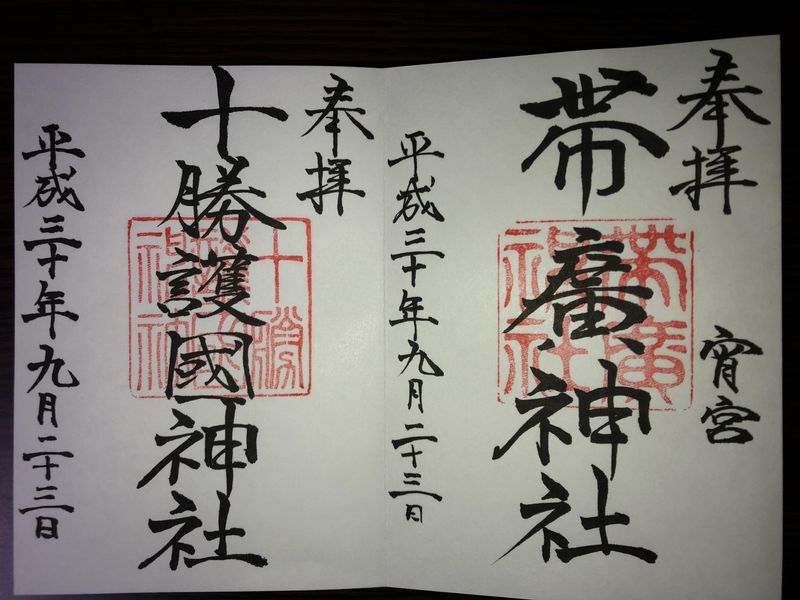 奉拝
宵宮
帯廣神社
帯廣
神社
平成三十年九月二十三日
奉拝
十勝護國神社
十勝
平成三十年九月二十三日